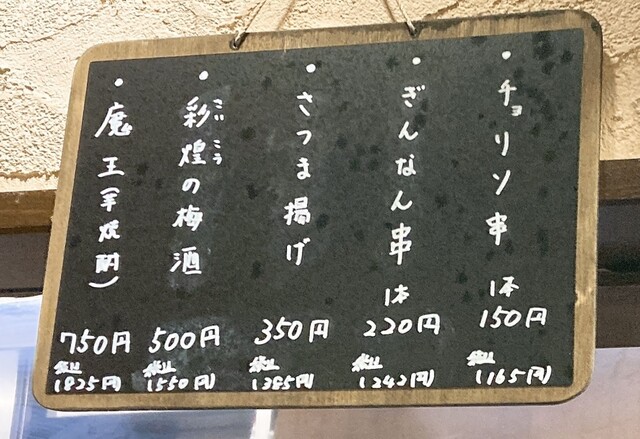 ・チョリソ串 1本
150円
税込
(165円)
・ぎんなん串 1本
220円
税込
(242円)
・さつま揚げ
350円
税込
(385円)
・彩煌の梅酒
さいこう
500円
税込
(550円)
・魔王(芋焼酎)
750円
税込
(825円)